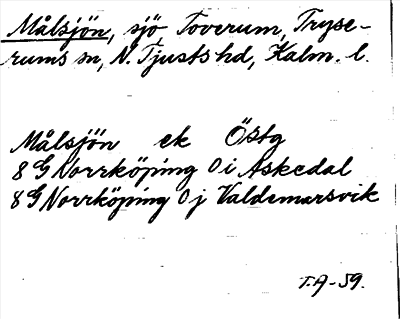 Målsjön, sjö, Toverum, Tryse-
rums sn, N. Tjusts hd, Kalm. l.
Målsjön ek Östg
8 G Norrköping 0 i Askedal
8 G Norrköping 0 j Valdemarsvik
T.A-59.